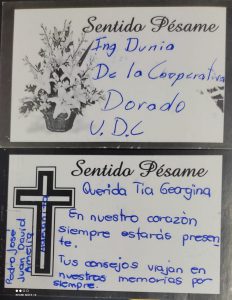 Sentido Pésame
Ing Dunia
De la Cooperativa
Dorado
U.D.C
Sentido Pésame
Querida Tia Georgina
En nuestro corazón
siempre estarás presen
te.
Tus consejos viajan en
nuestras memorias por
siempre.
Pedro José
Juan David
Amelia